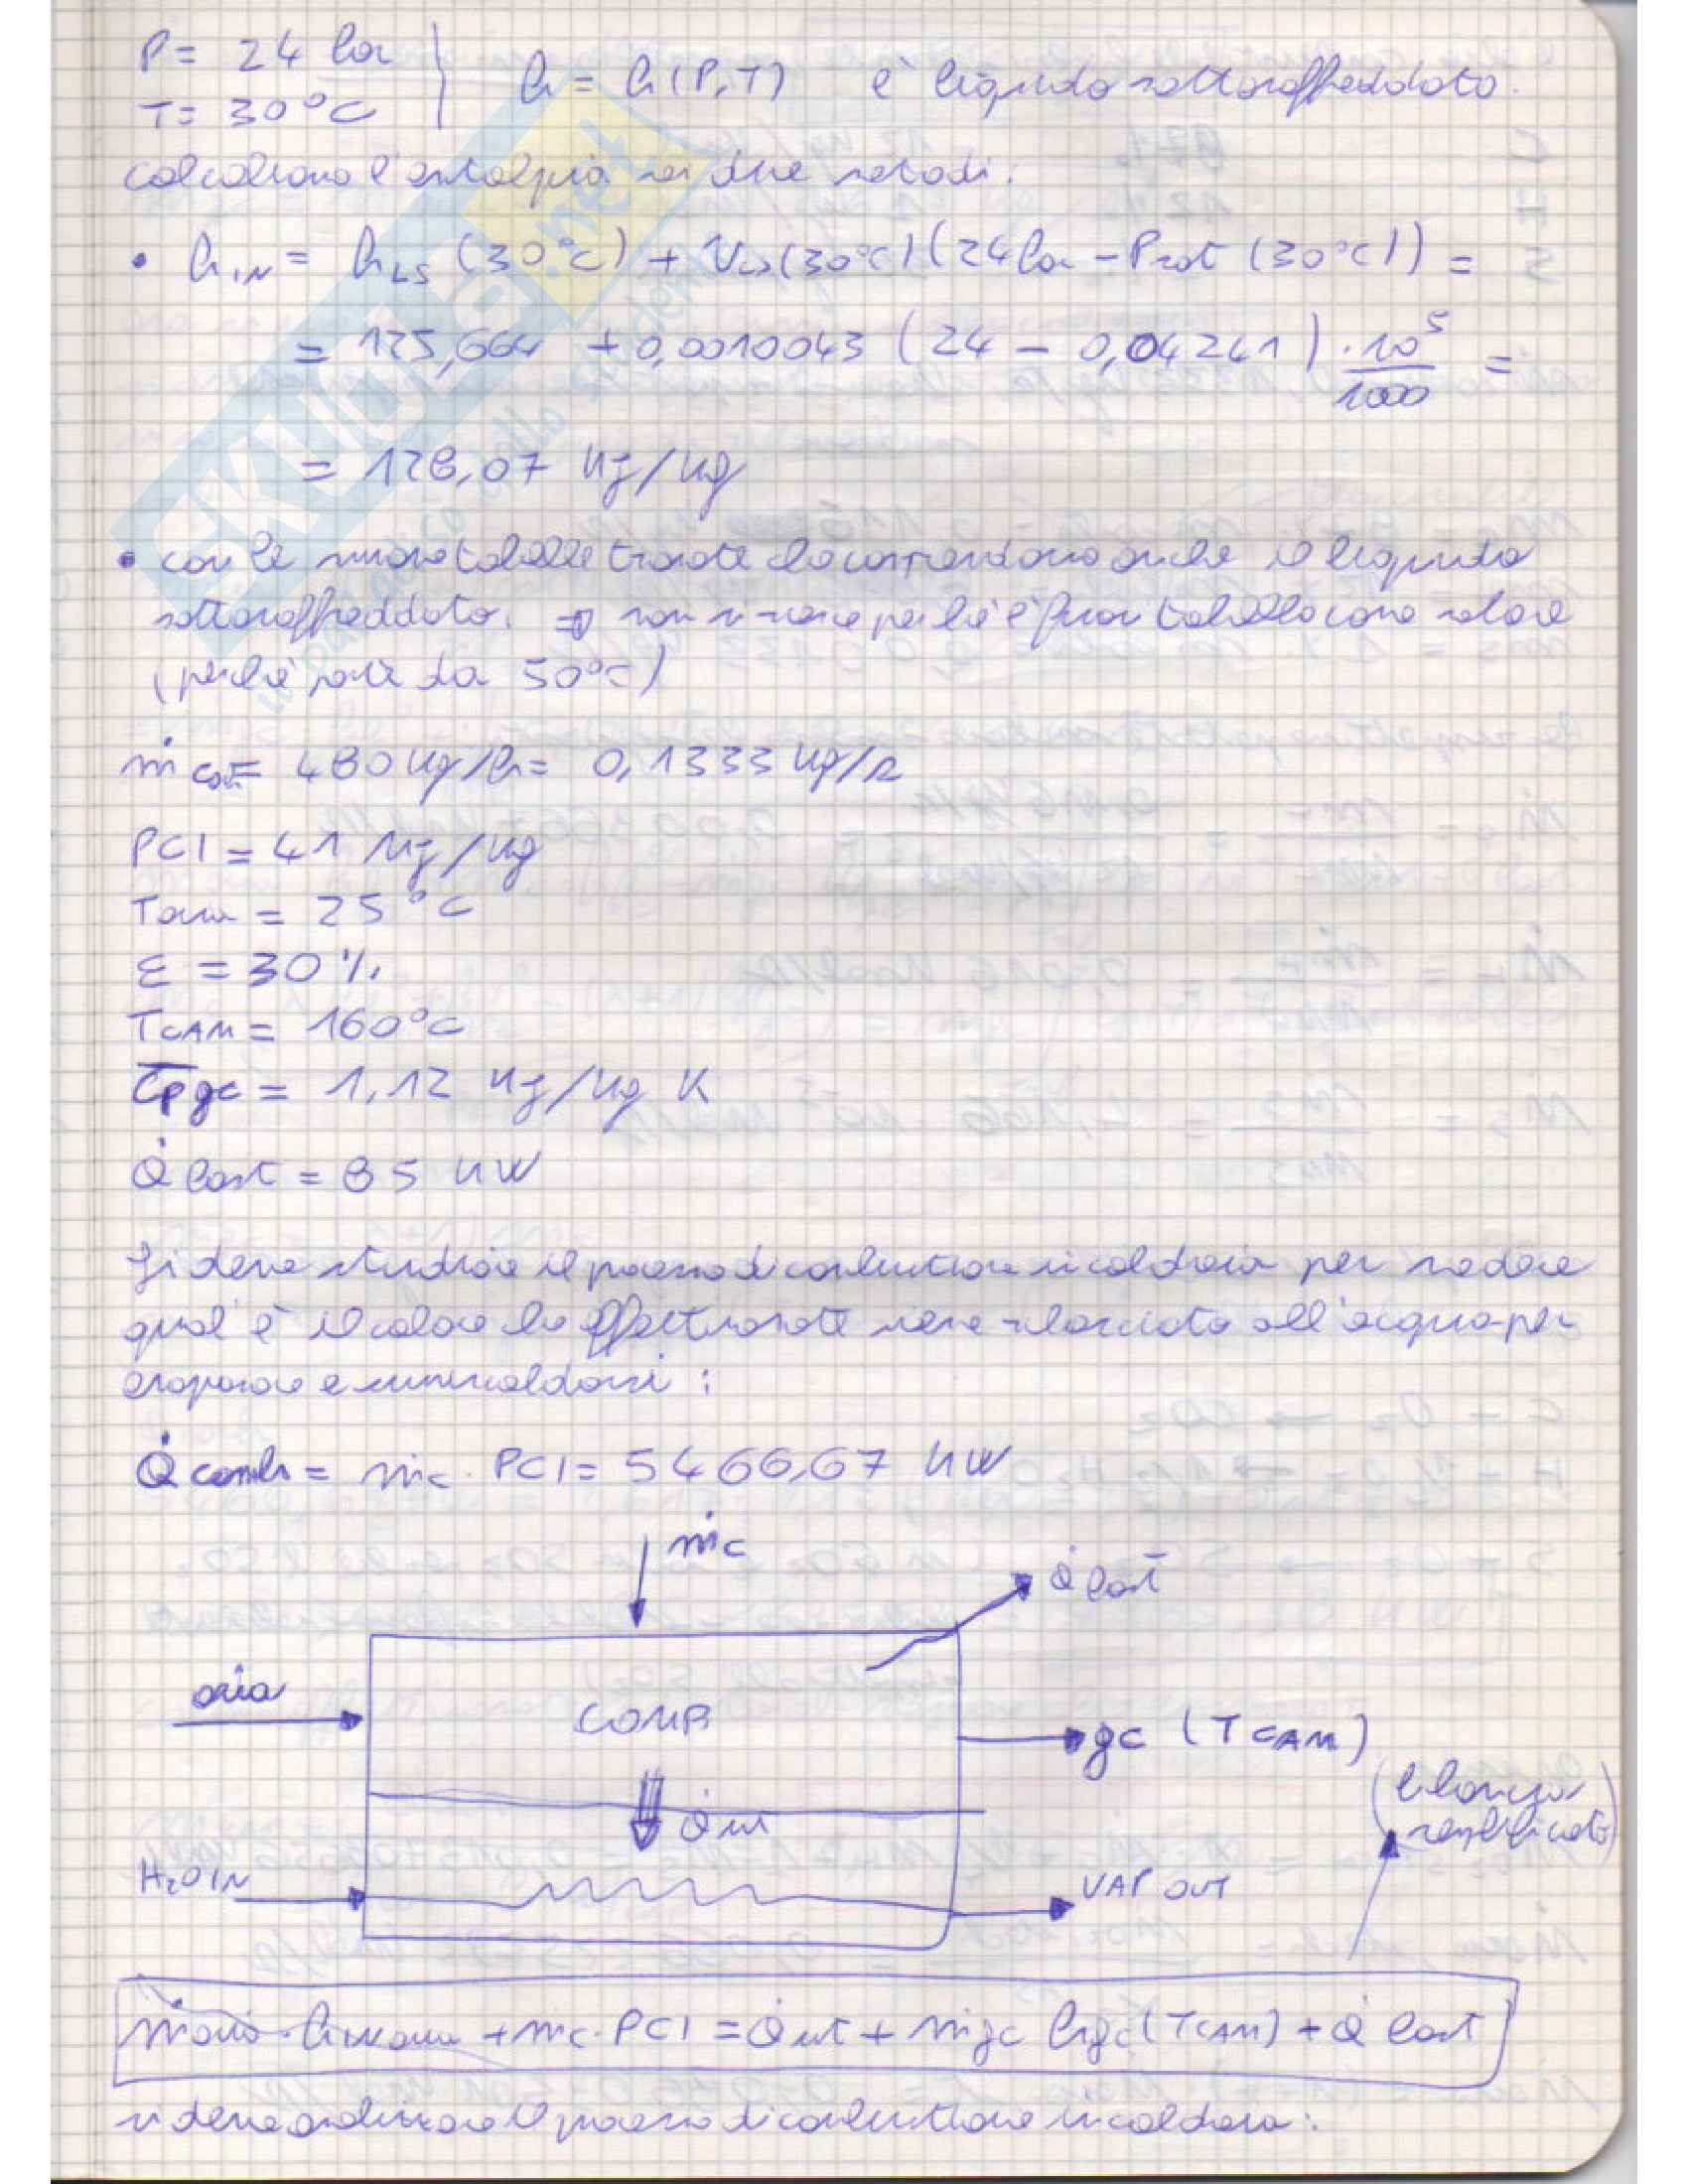 P = 24 bar
T = 30°C
h = h(P,T) è liquido sottoraffreddato.
calcoliamo l'entalpia nei due metodi:
• hIN = hLS (30°C) + VLS (30°C) (24 bar - Psat (30°C)) =
= 125,664 + 0,0010043 (24 - 0,04241) · 10^5/1000 =
= 128,07 kJ/kg
• con le nuove tabelle trovate che comprendono anche il liquido
sottoraffreddato. ⇒ non si riesce perché è fuori tabella come valore
(perché parte da 50°C)
ṁcom = 480 kg/h = 0,1333 kg/s
PCI = 41 MJ/kg
Taria = 25°C
ε = 30%
TCAM = 160°C
c̄pgc = 1,12 kJ/kg K
Q̇ lost = 85 kW
Si deve studiare il processo di combustione in caldaia per vedere
qual è il calore che effettivamente viene rilasciato all'acqua per
evaporare e surriscaldarsi:
Q̇ comb = ṁc · PCI = 5466,67 kW
ṁc
Q̇ lost
aria
COMB
gc (TCAM)
(bilancio
semplificato)
Q̇ ut
H2O IN
VAP OUT
ṁaria · hIN aria + ṁc · PCI = Q̇ ut + ṁgc hgc (TCAM) + Q̇ lost
si deve analizzare il processo di combustione in caldaia:
SKUOLA.net